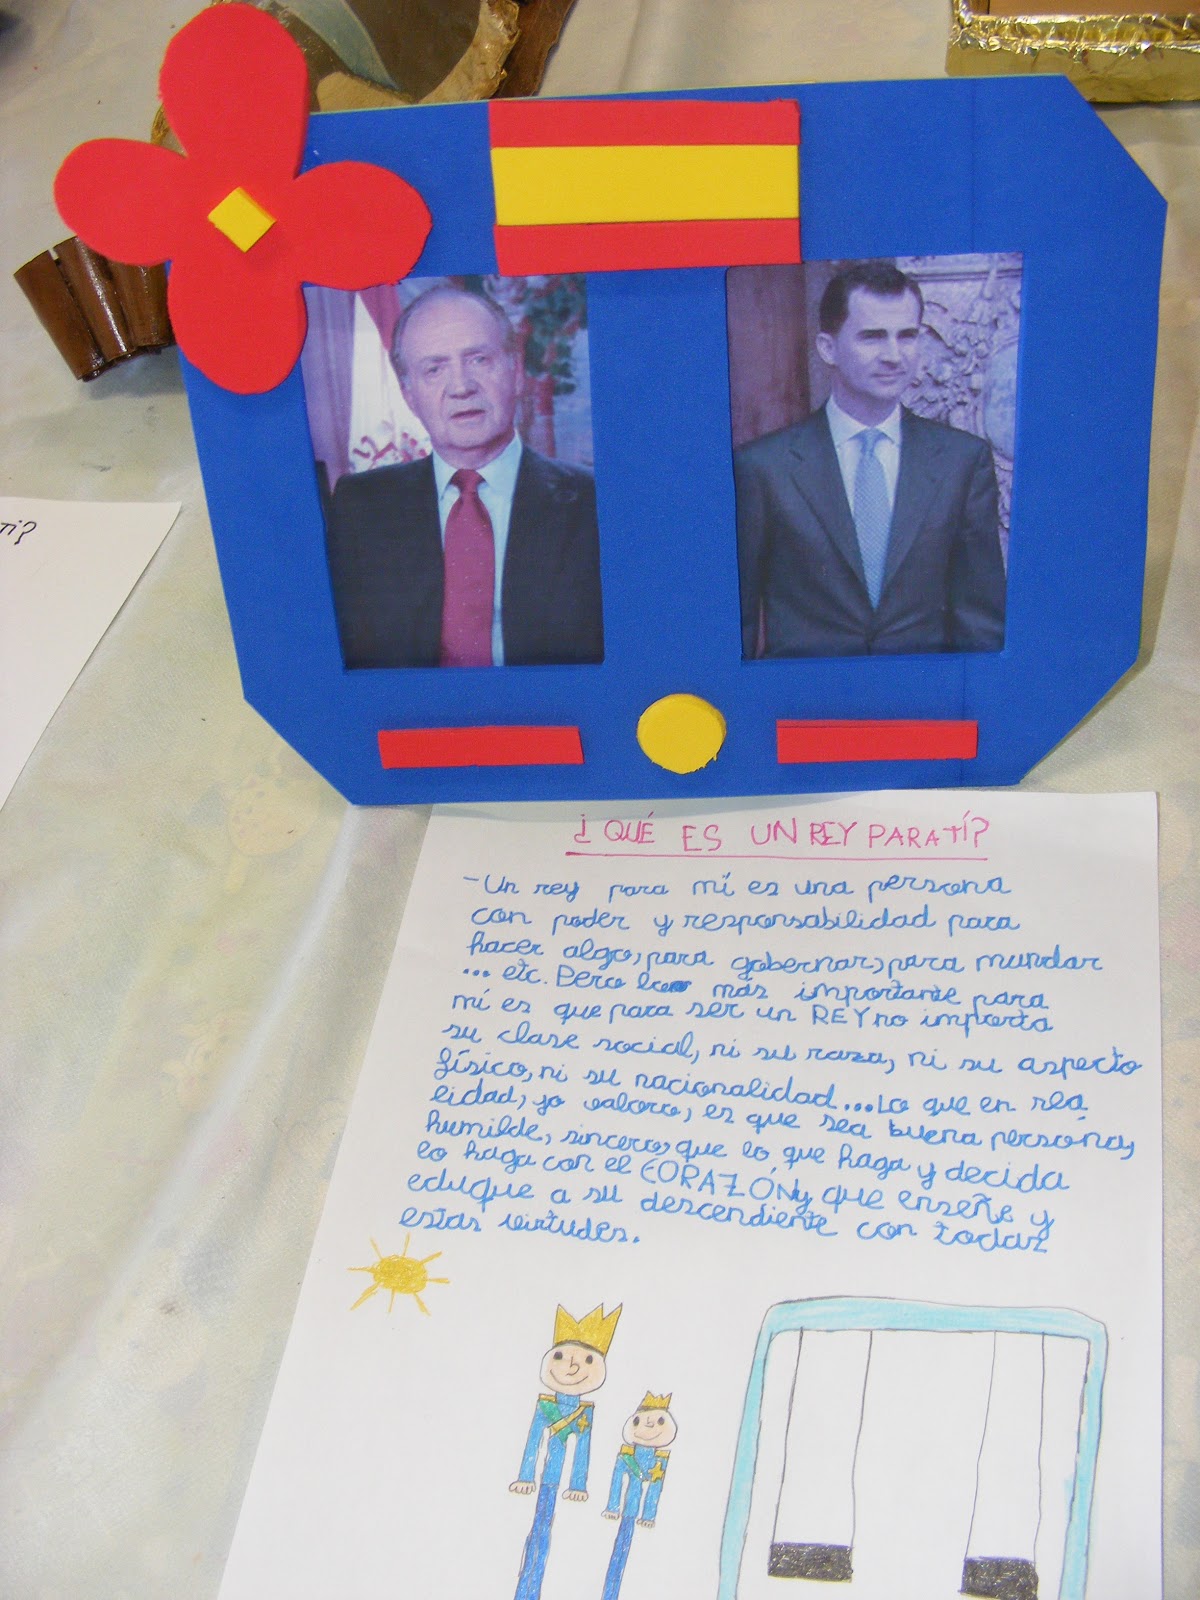 Ti?
¿QUÉ ES UN REY PARA TÍ?
-Un rey para mí es una persona
con poder y responsabilidad para
hacer algo, para gobernar, para mundar
... etc. Pero lo más importante para
mí es que para ser un REY no importa
su clase social, ni su raza, ni su aspecto
físico, ni su nacionalidad... Lo que en rea
lidad, yo valoro, es que sea buena persona,
humilde, sincero, que lo que haga y decida
lo haga con el CORAZÓN y que enseñe y
eduque a su descendiente con todas
estas virtudes.